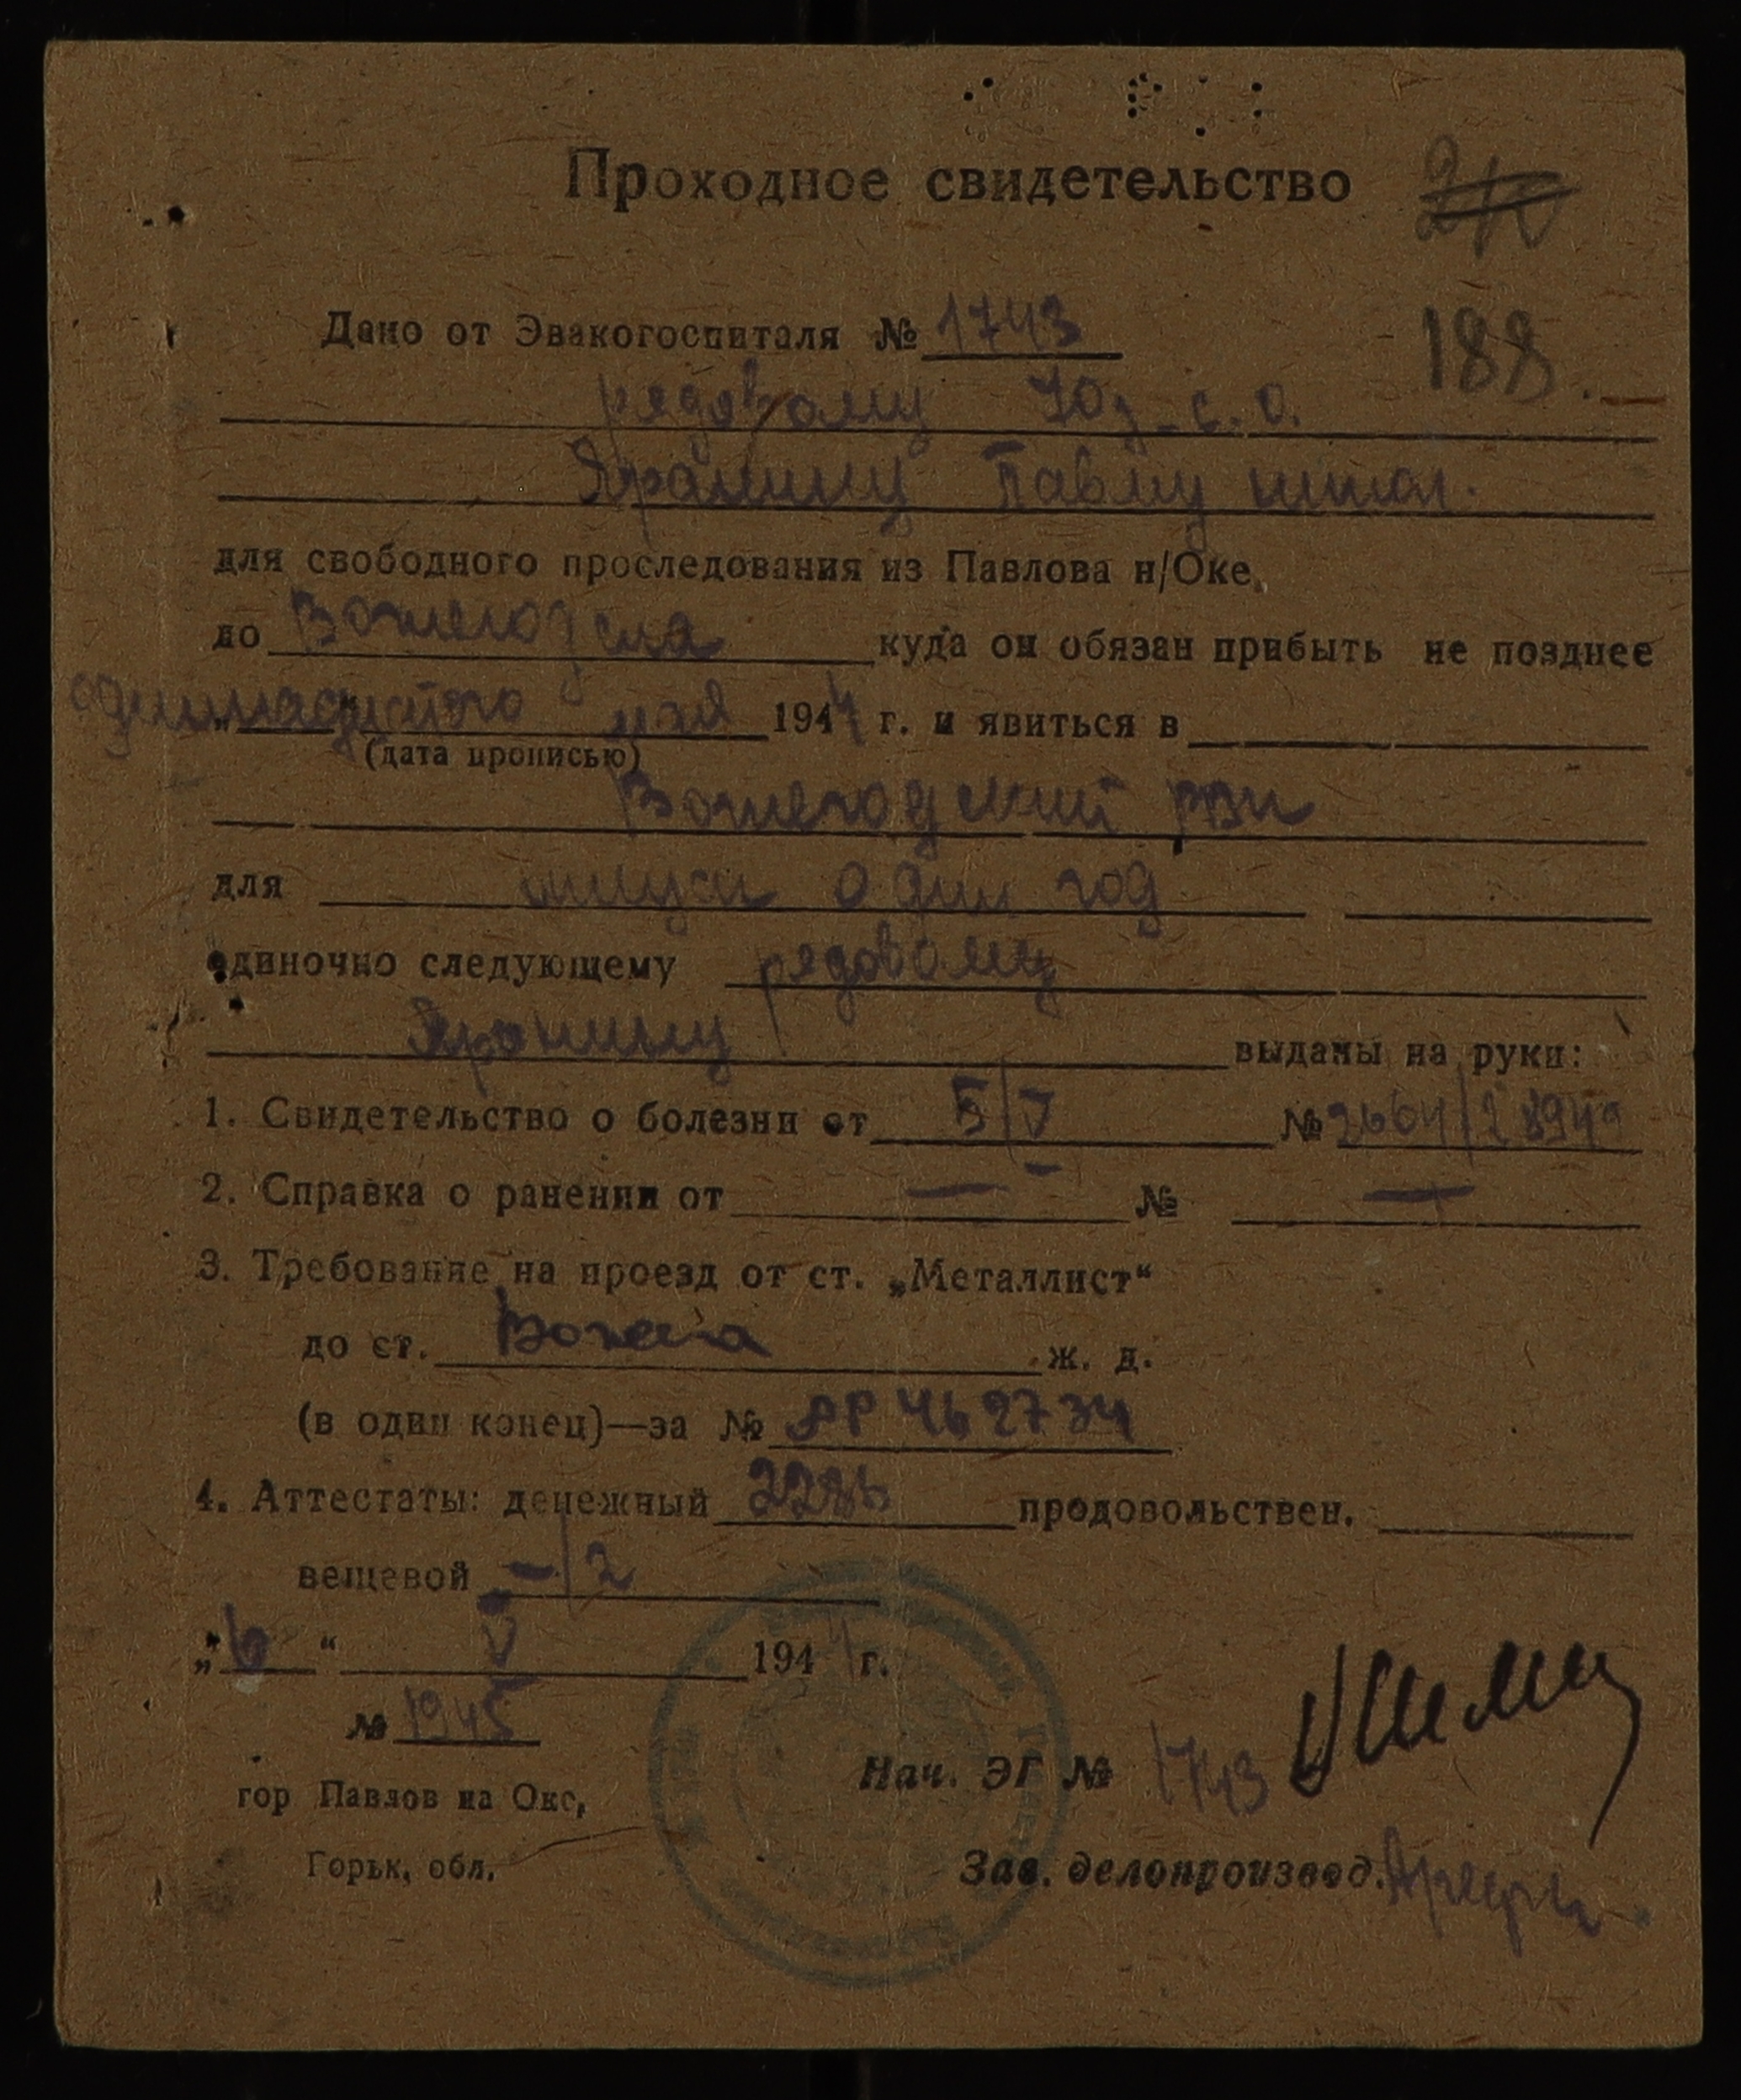 Проходное свидетельство
188.
Дано от Эвакогоспиталя № 1743
рядовому
Павлу
для свободного проследования из Павлова н/Оке,
до куда он обязан прибыть не позднее
одиннадцатого мая 1944 г. и явиться в
(дата прописью)
Вожегодский рвк
для один год
одиночно следующему рядовому
выданы на руки:
1. Свидетельство о болезни от 5/V №
2. Справка о ранении от — № —
3. Требование на проезд от ст. „Металлист“
до ст. Вожега ж. д.
(в один конец)—за № 462734
4. Аттестаты: денежный продовольствен.
вещевой —/2
„6“ V 1944 г.
№ 1945
Нач. ЭГ № 1743
гор Павлов на Оке,
Горьк, обл.
Зав. делопроизвод.